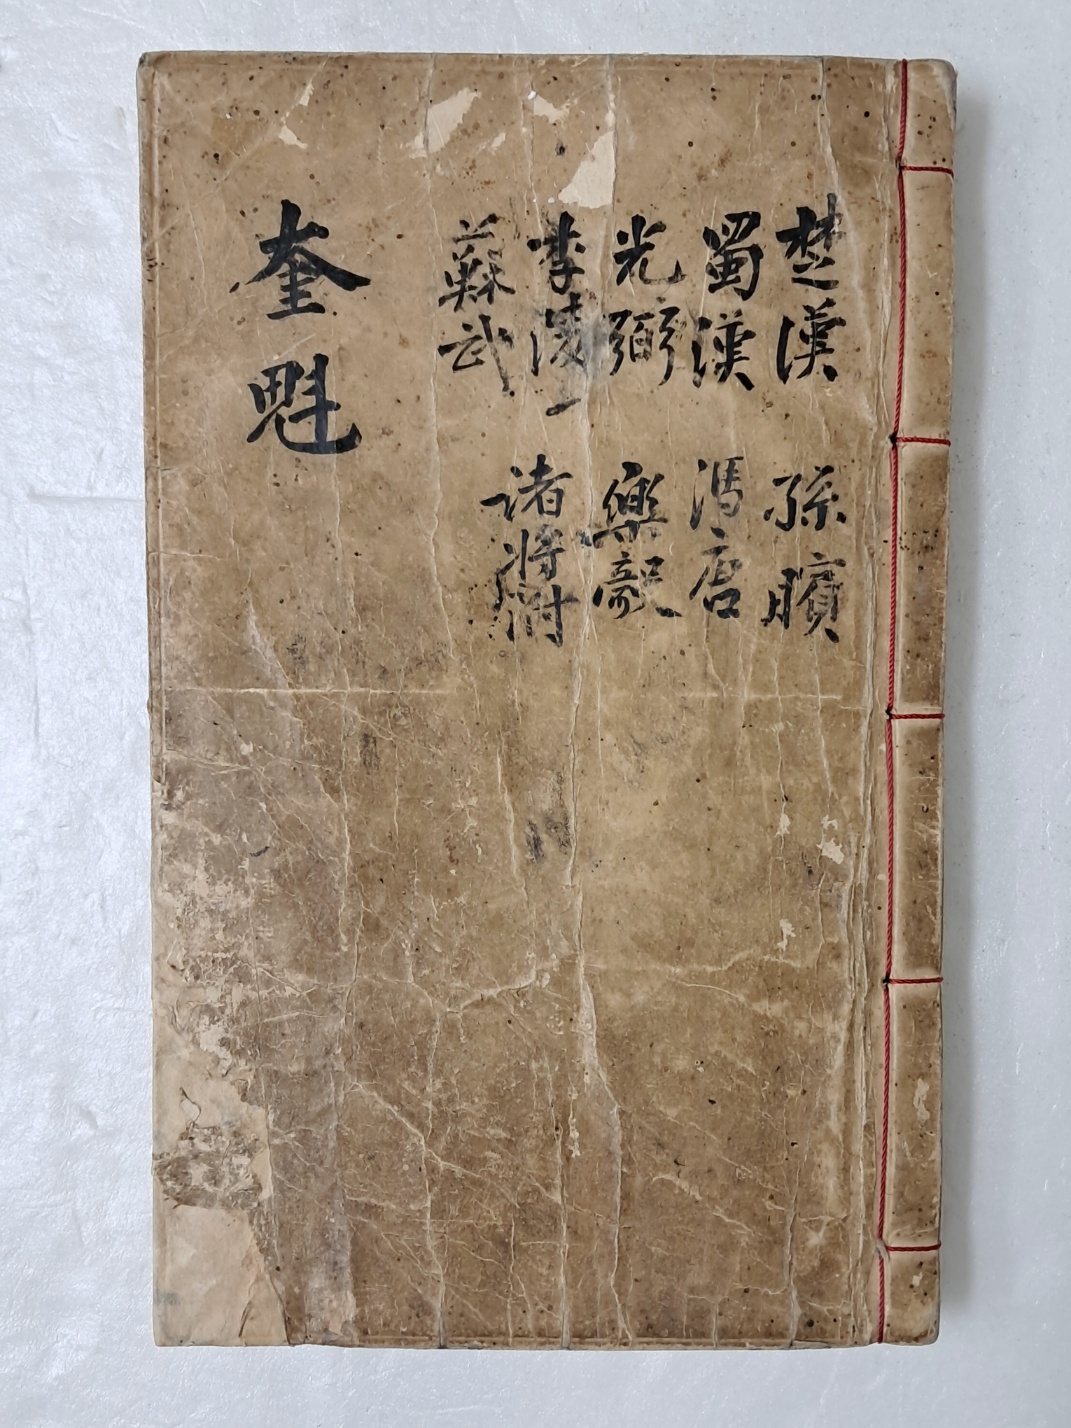 楚漢
孫臏
蜀漢
馮唐
光弼
樂毅
李陵
諸將附
蘇武
奎魁